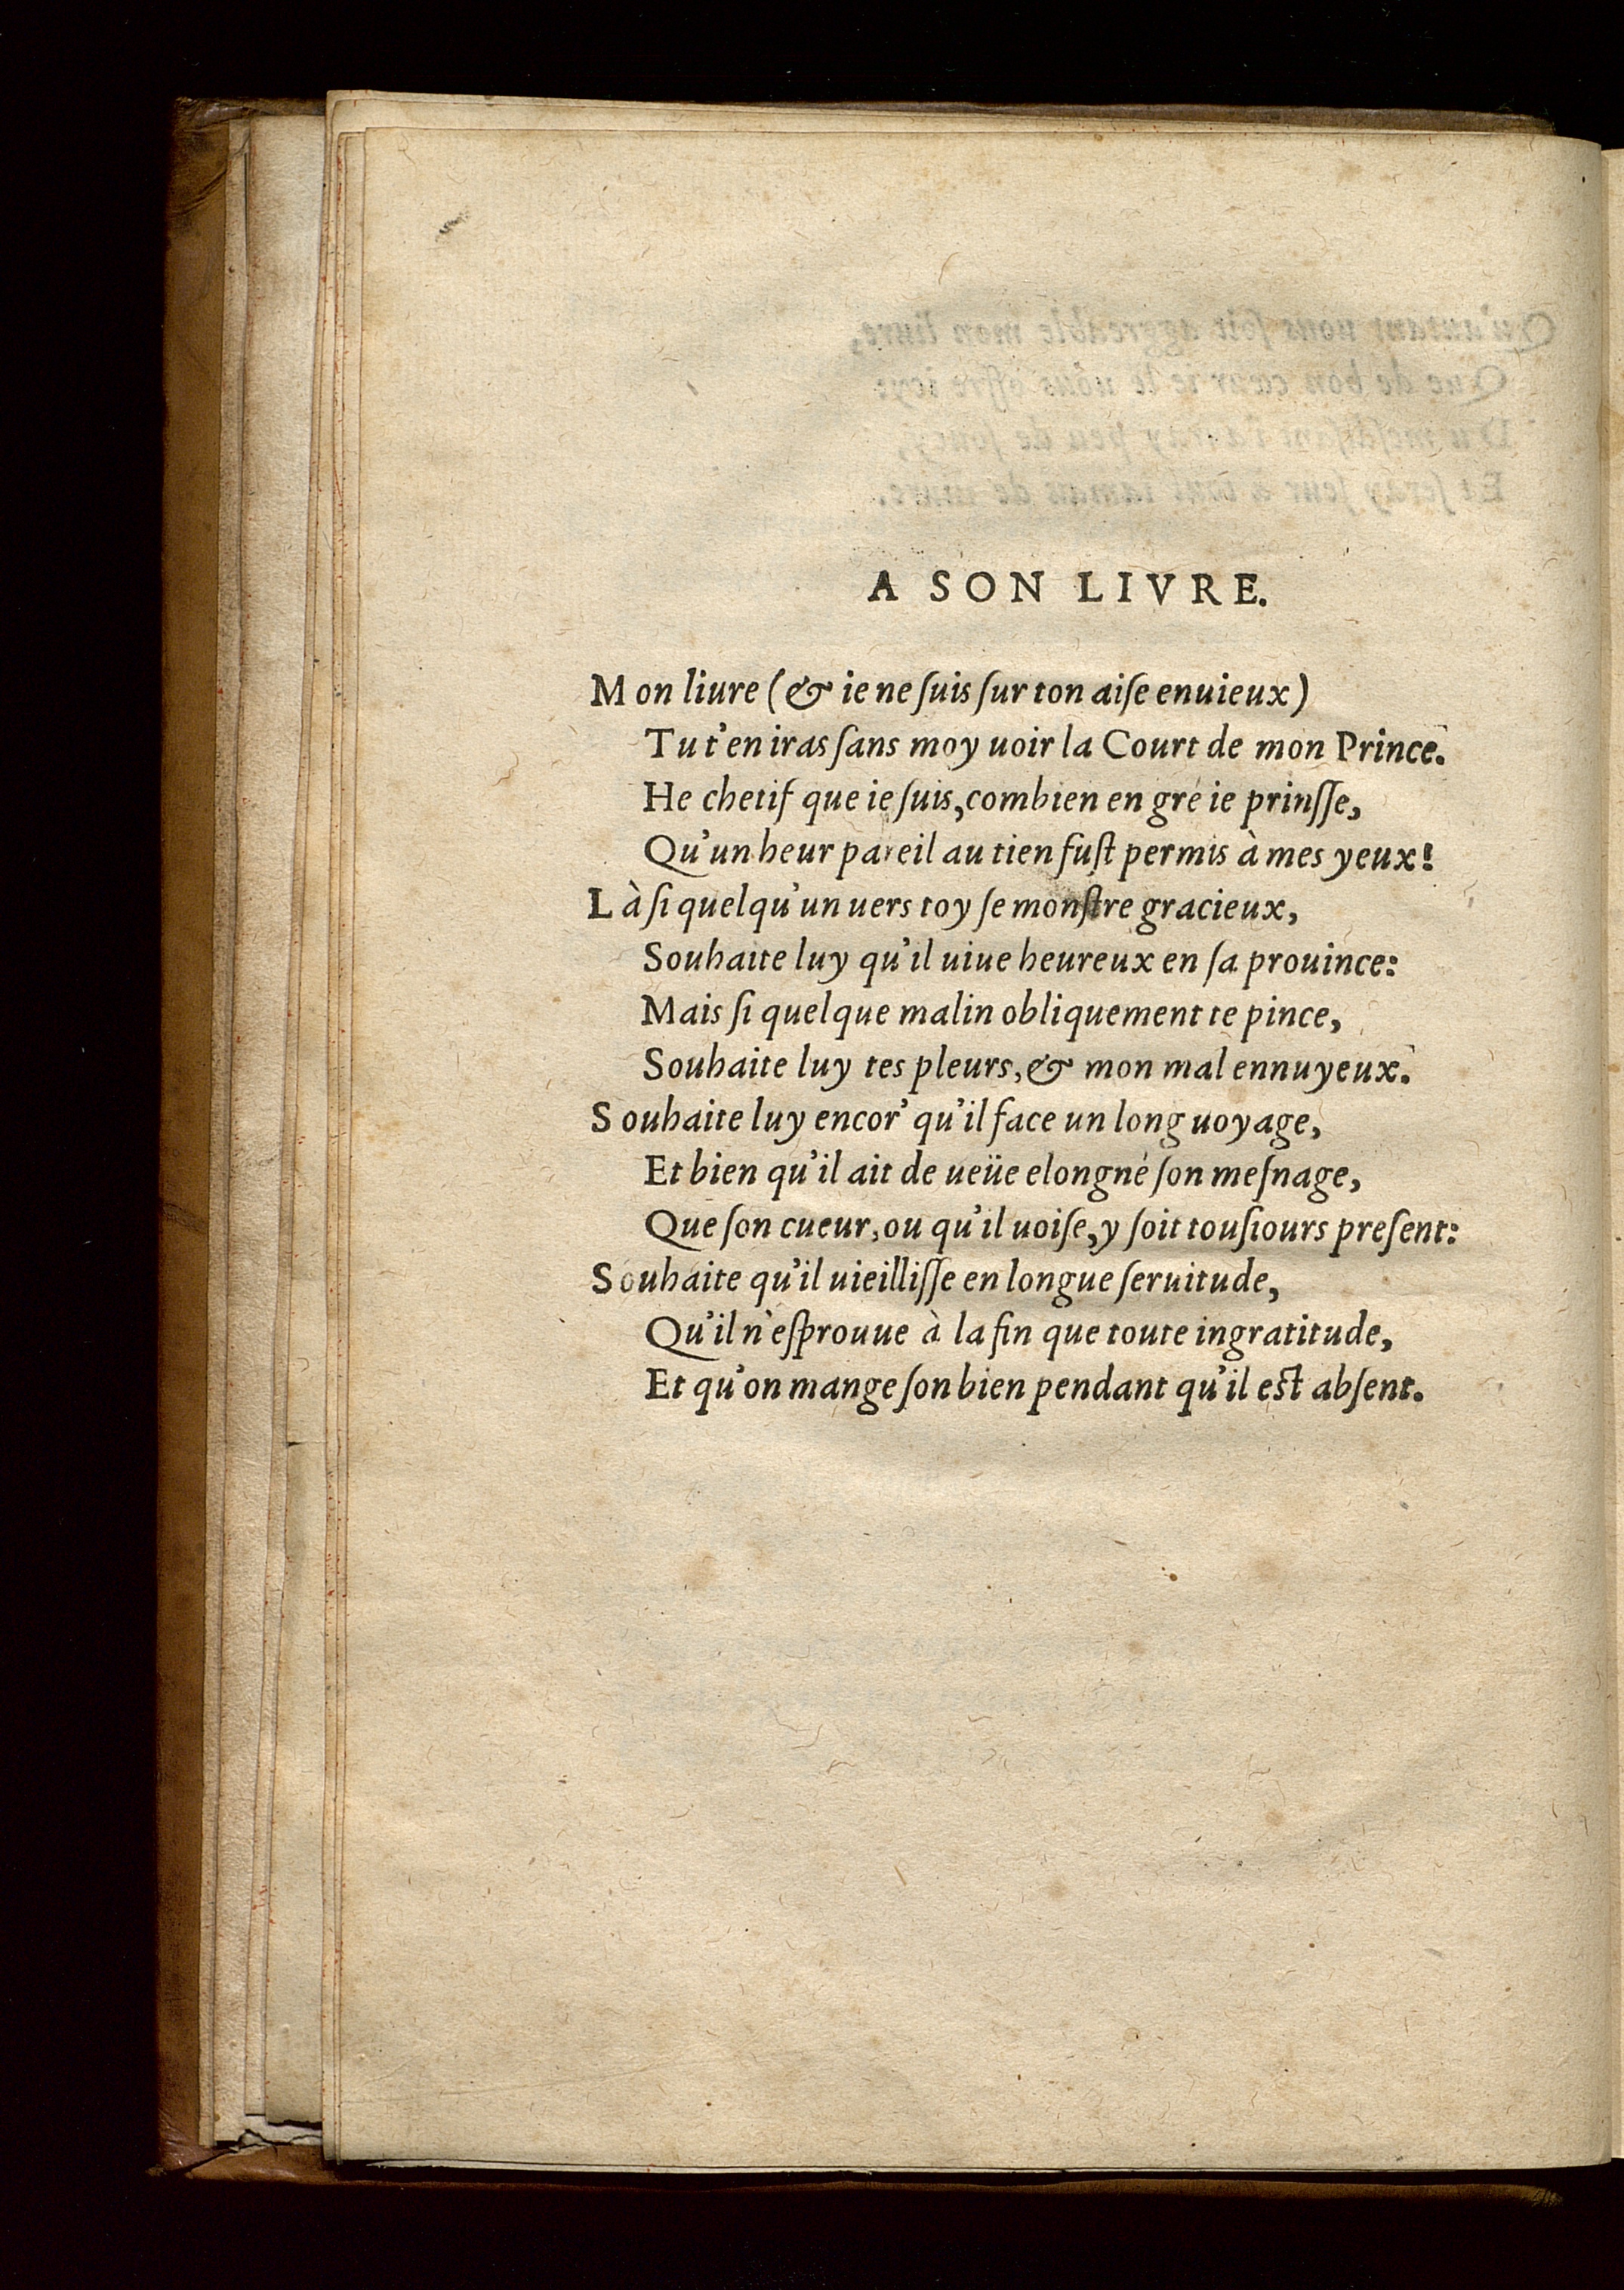 A SON LIVRE.
Mon liure (& ie ne ſuis ſur ton aiſe enuieux)
Tu t'en iras ſans moy uoir la Court de mon Prince.
He chetif que ie ſuis, combien en gré ie prinſſe,
Qu'un heur pareil au tien fuſt permis à mes yeux!
Là ſi quelqu'un uers toy ſe monſtre gracieux,
Souhaite luy qu'il uiue heureux en ſa prouince:
Mais ſi quelque malin obliquement te pince,
Souhaite luy tes pleurs, & mon mal ennuyeux.
Souhaite luy encor' qu'il face un long uoyage,
Et bien qu'il ait de ueüe elongné ſon meſnage,
Que ſon cueur, ou qu'il uoiſe, y ſoit touſiours preſent:
Souhaite qu'il uieilliſſe en longue ſeruitude,
Qu'il n'eſprouue à la fin que toute ingratitude,
Et qu'on mange ſon bien pendant qu'il eſt abſent.